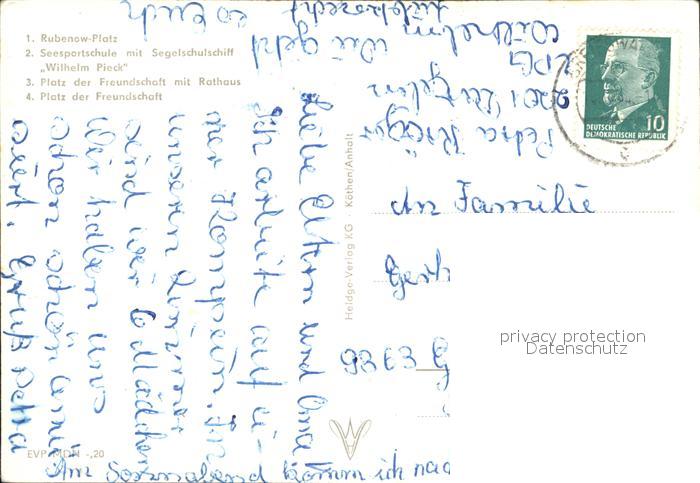 1. Rubenow-Platz
2. Seesportschule mit Segelschulschiff
„Wilhelm Pieck"
3. Platz der Freundschaft mit Rathaus
4. Platz der Freundschaft
Liebe Eltern und Oma
Ich arbeite auf ei-
ner Kompein. In
unseren Zimmer
sind wir 6 Mädchen
Wir haben uns
schon schön
siert. Gruß Petra
Am Sonnabend komm ich nac
Wie geht
es Euch
Petra Krüger
LPG
Wilhelm
Heldge-Verlag KG Köthen/Anhalt
EVP MDN -,20
DEUTSCHE
DEMOKRATISCHE REPUBLIK
10
An Familie
Gerh
9363 G
privacy protection
Datenschutz